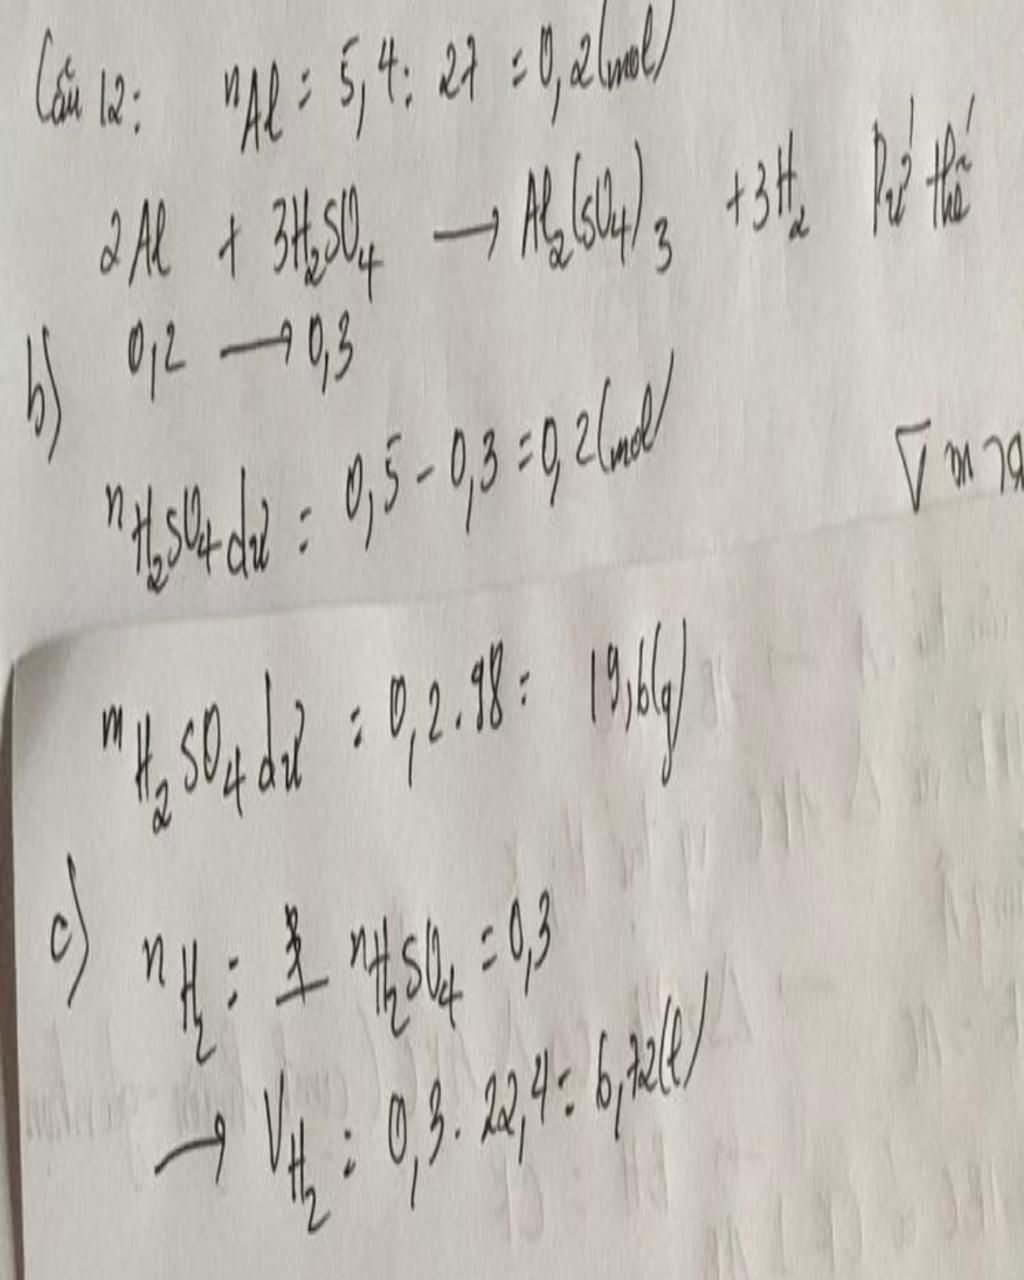 Câu 12: nAl = 5,4: 27 = 0,2(mol)
2Al + 3H2SO4 → Al2(SO4)3 + 3H2 Pứ thế
b) 0,2 → 0,3
nH2SO4 dư = 0,5 - 0,3 = 0,2(mol)
mH2SO4 dư = 0,2.98 = 19,6(g)
c) nH2 = nH2SO4 = 0,3
→ VH2 = 0,3.22,4 = 6,72(l)